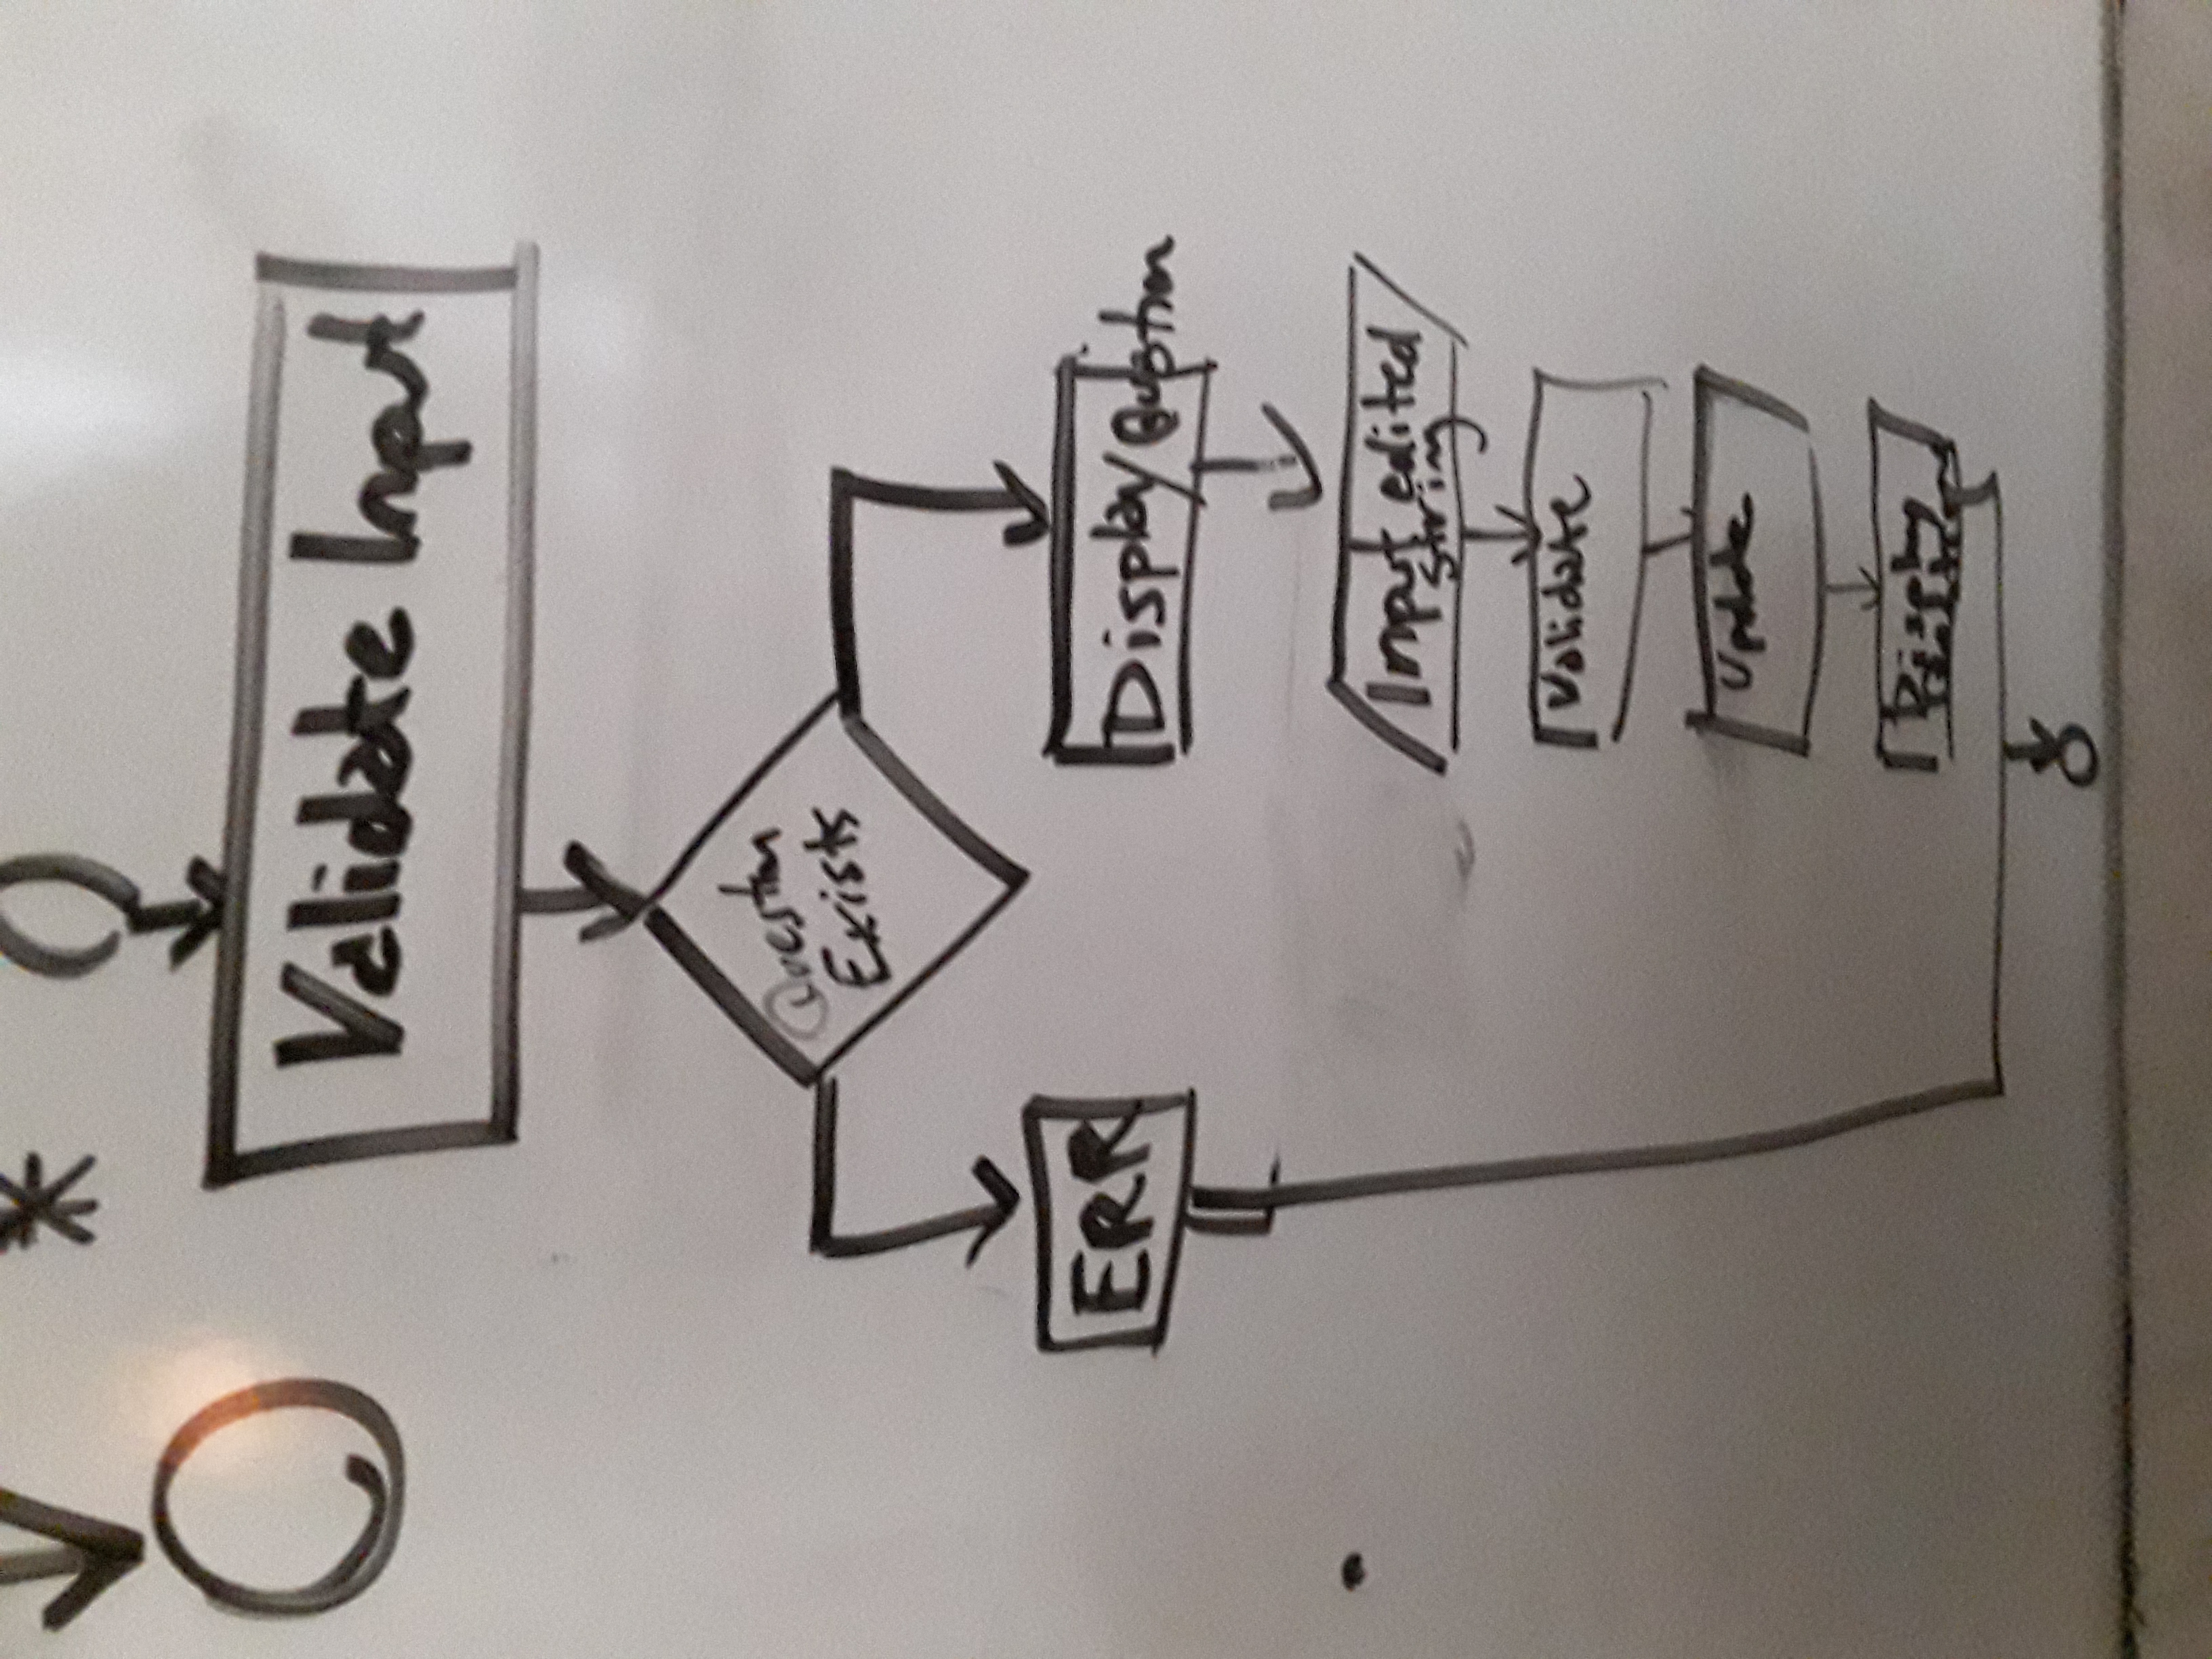 *
Validate Input
Question
Exists
ERR
Display Question
Input edited
string
Validate
Update
Display